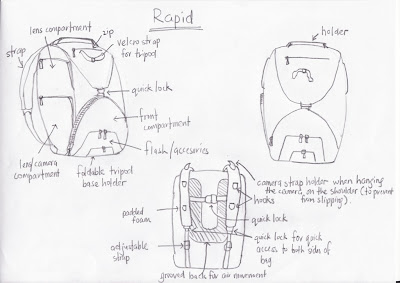 Rapid
lens compartment
zip
velcro strap
for tripod
strap
quick lock
front
compartment
flash/accesories
lens/camera
compartment
foldable tripod
base holder
holder
camera strap holder when hanging
the camera on the shoulder (to prevent
from slipping).
hooks
padded
foam
quick lock
adjustable
strap
quick lock for quick
access to both side of
bag
grooved back for air movement